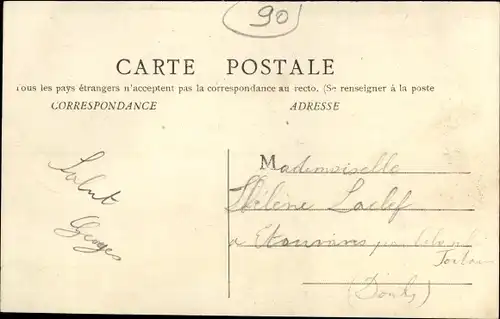 90
CARTE POSTALE
Tous les pays étrangers n'acceptent pas la correspondance au recto. (Se renseigner à la poste
CORRESPONDANCE ADRESSE
Salut
Georges
Mademoiselle
Hélène Laclef
à
(Doubs)